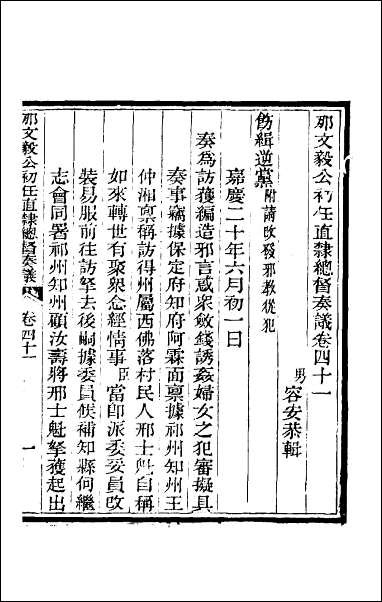 那文毅公初任直隸總督奏議卷四十一
男 容安恭輯
飭緝逆黨 附請改發邪教從犯
嘉慶二十年六月初一日
奏為訪獲編造邪言惑衆斂錢誘姦婦女之犯審擬具
奏事竊據保定府知府阿霖面稟據祁州知州王
仲湘稟稱訪得州屬西佛落村民人邢士魁自稱
如來轉世有聚衆念經情事臣當即派委委員改
裝易服前往訪拏去後嗣據委員候補知縣何繼
志會同署祁州知州顧汝壽將邢士魁拏獲起出
那文毅公初任直隸總督奏議 卷四十一 一